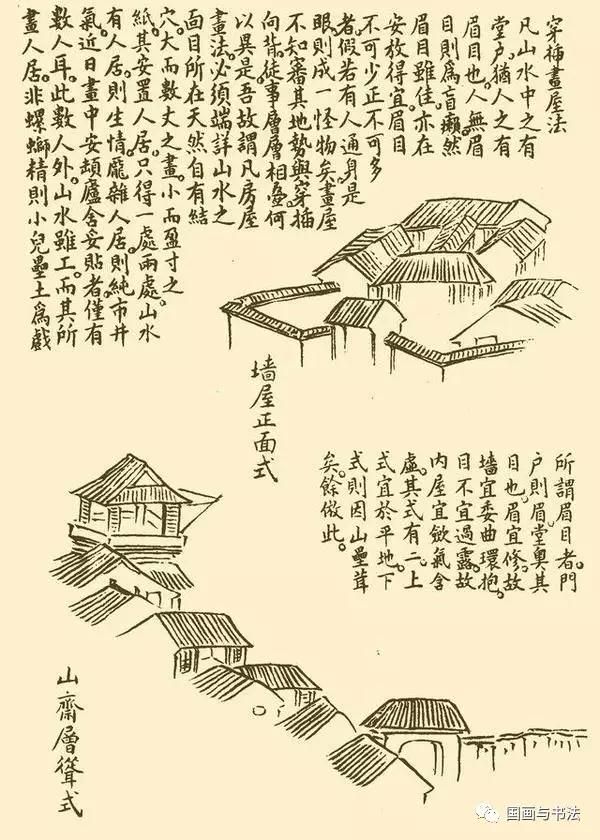 穿揷畫屋法
凡山水中之有
堂户。猶人之有
眉目也。人無眉
目則爲盲癩。然
眉目雖佳。亦在
安放得宜。眉目
不可少正不可多
者。假若有人通身是
眼。則成一怪物矣。畫屋
不知審其地勢與穿揷
向背。徒事層層相疊。何
以異是。吾故謂凡房屋
畫法。必須端詳山水之
面目所在。天然自有結
穴。大而數丈之畫。小而盈寸之
紙。其安置人居。只得一處兩處。山水
有人居。則生情。龐雜人居。則純市井
氣。近日畫中安頓廬舍妥貼者。僅有
數人耳。此數人外。山水雖工。而其所
畫人居。非螺螄精。則小兒壘土爲戲
墻屋正面式
所謂眉目者。門
户則眉。堂奥其
目也。眉宜修。故
墻宜委曲環抱。
目不宜過露。故
内屋宜歛氣含
虛。其式有二。上
式宜於平地。下
式則因山壘茸
矣。餘倣此。
山齋層聳式
国画与书法